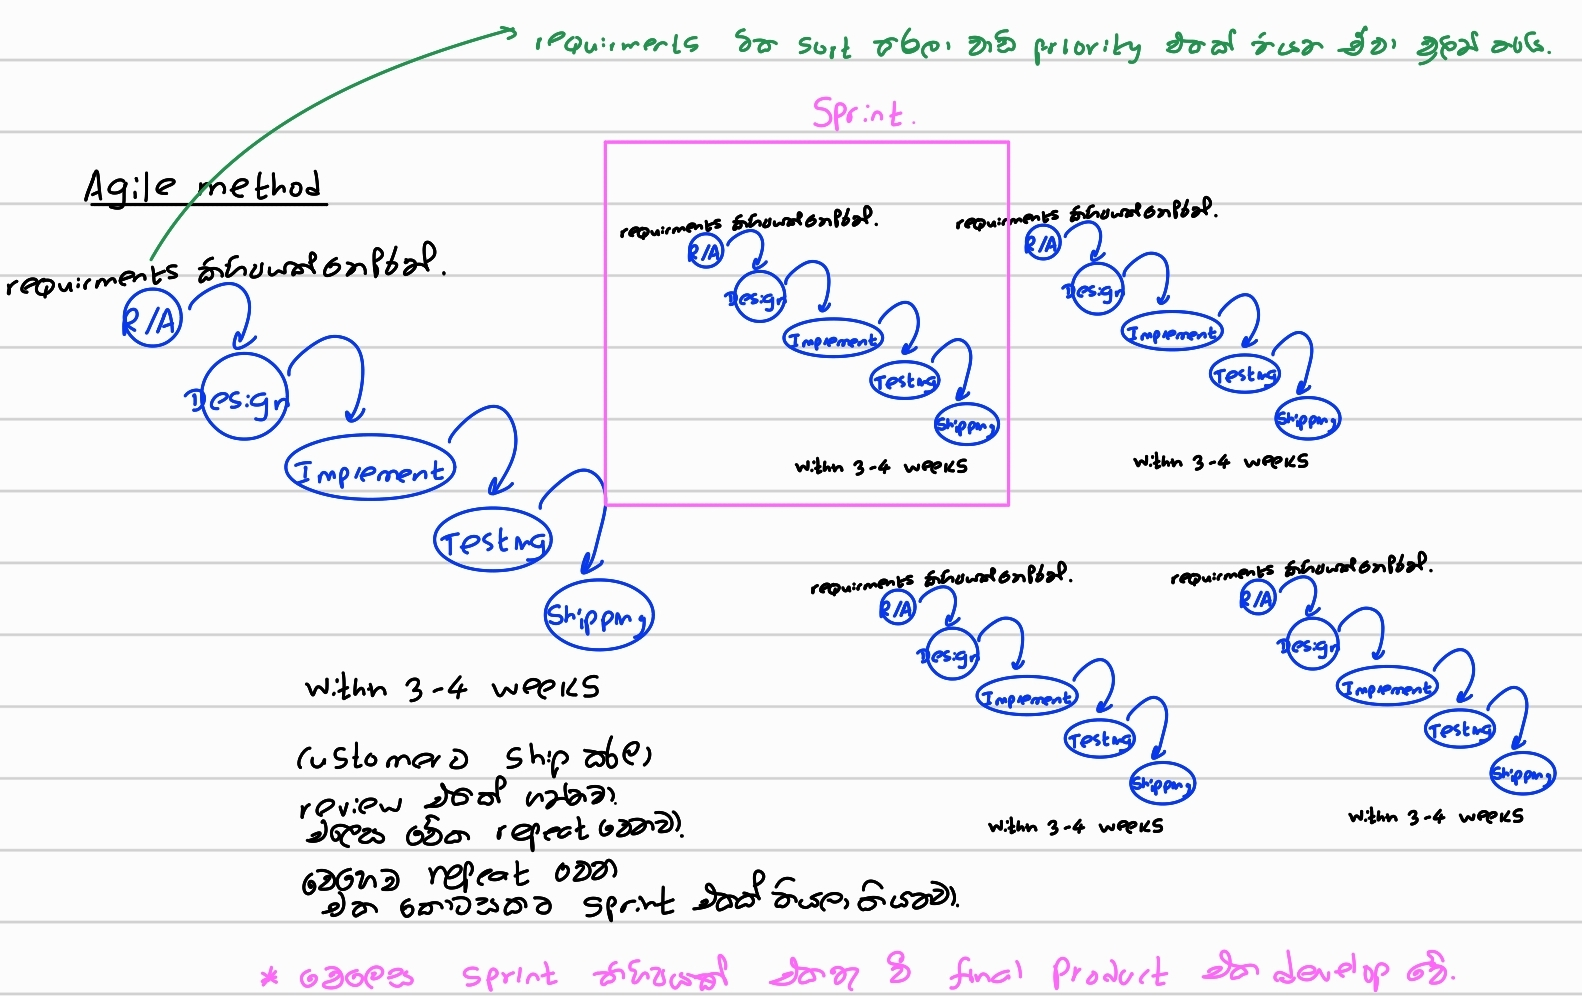 requirments ටික sort කරලා වැඩි priority එකක් තියන ඒවා මුලින් කරයි.
Sprint.
Agile method
requirments කිහිපයක් ගනිමින්.
R/A
Design
Implement
Testing
Shipping
within 3-4 weeks
customerට ship කරලා
review එකක් ගන්නවා.
එලෙස මේක repeat වෙනවා.
මෙහෙම repeat වෙන
එක කොටසකට sprint එකක් කියලා කියනවා.
requirments කිහිපයක් ගනිමින්.
R/A
Design
Implement
Testing
Shipping
within 3-4 weeks
requirments කිහිපයක් ගනිමින්.
R/A
Design
Implement
Testing
Shipping
within 3-4 weeks
requirments කිහිපයක් ගනිමින්.
R/A
Design
Implement
Testing
Shipping
within 3-4 weeks
requirments කිහිපයක් ගනිමින්.
R/A
Design
Implement
Testing
Shipping
within 3-4 weeks
* මෙලෙස sprint කිහිපයක් එකතු වී final product එක develop වේ.